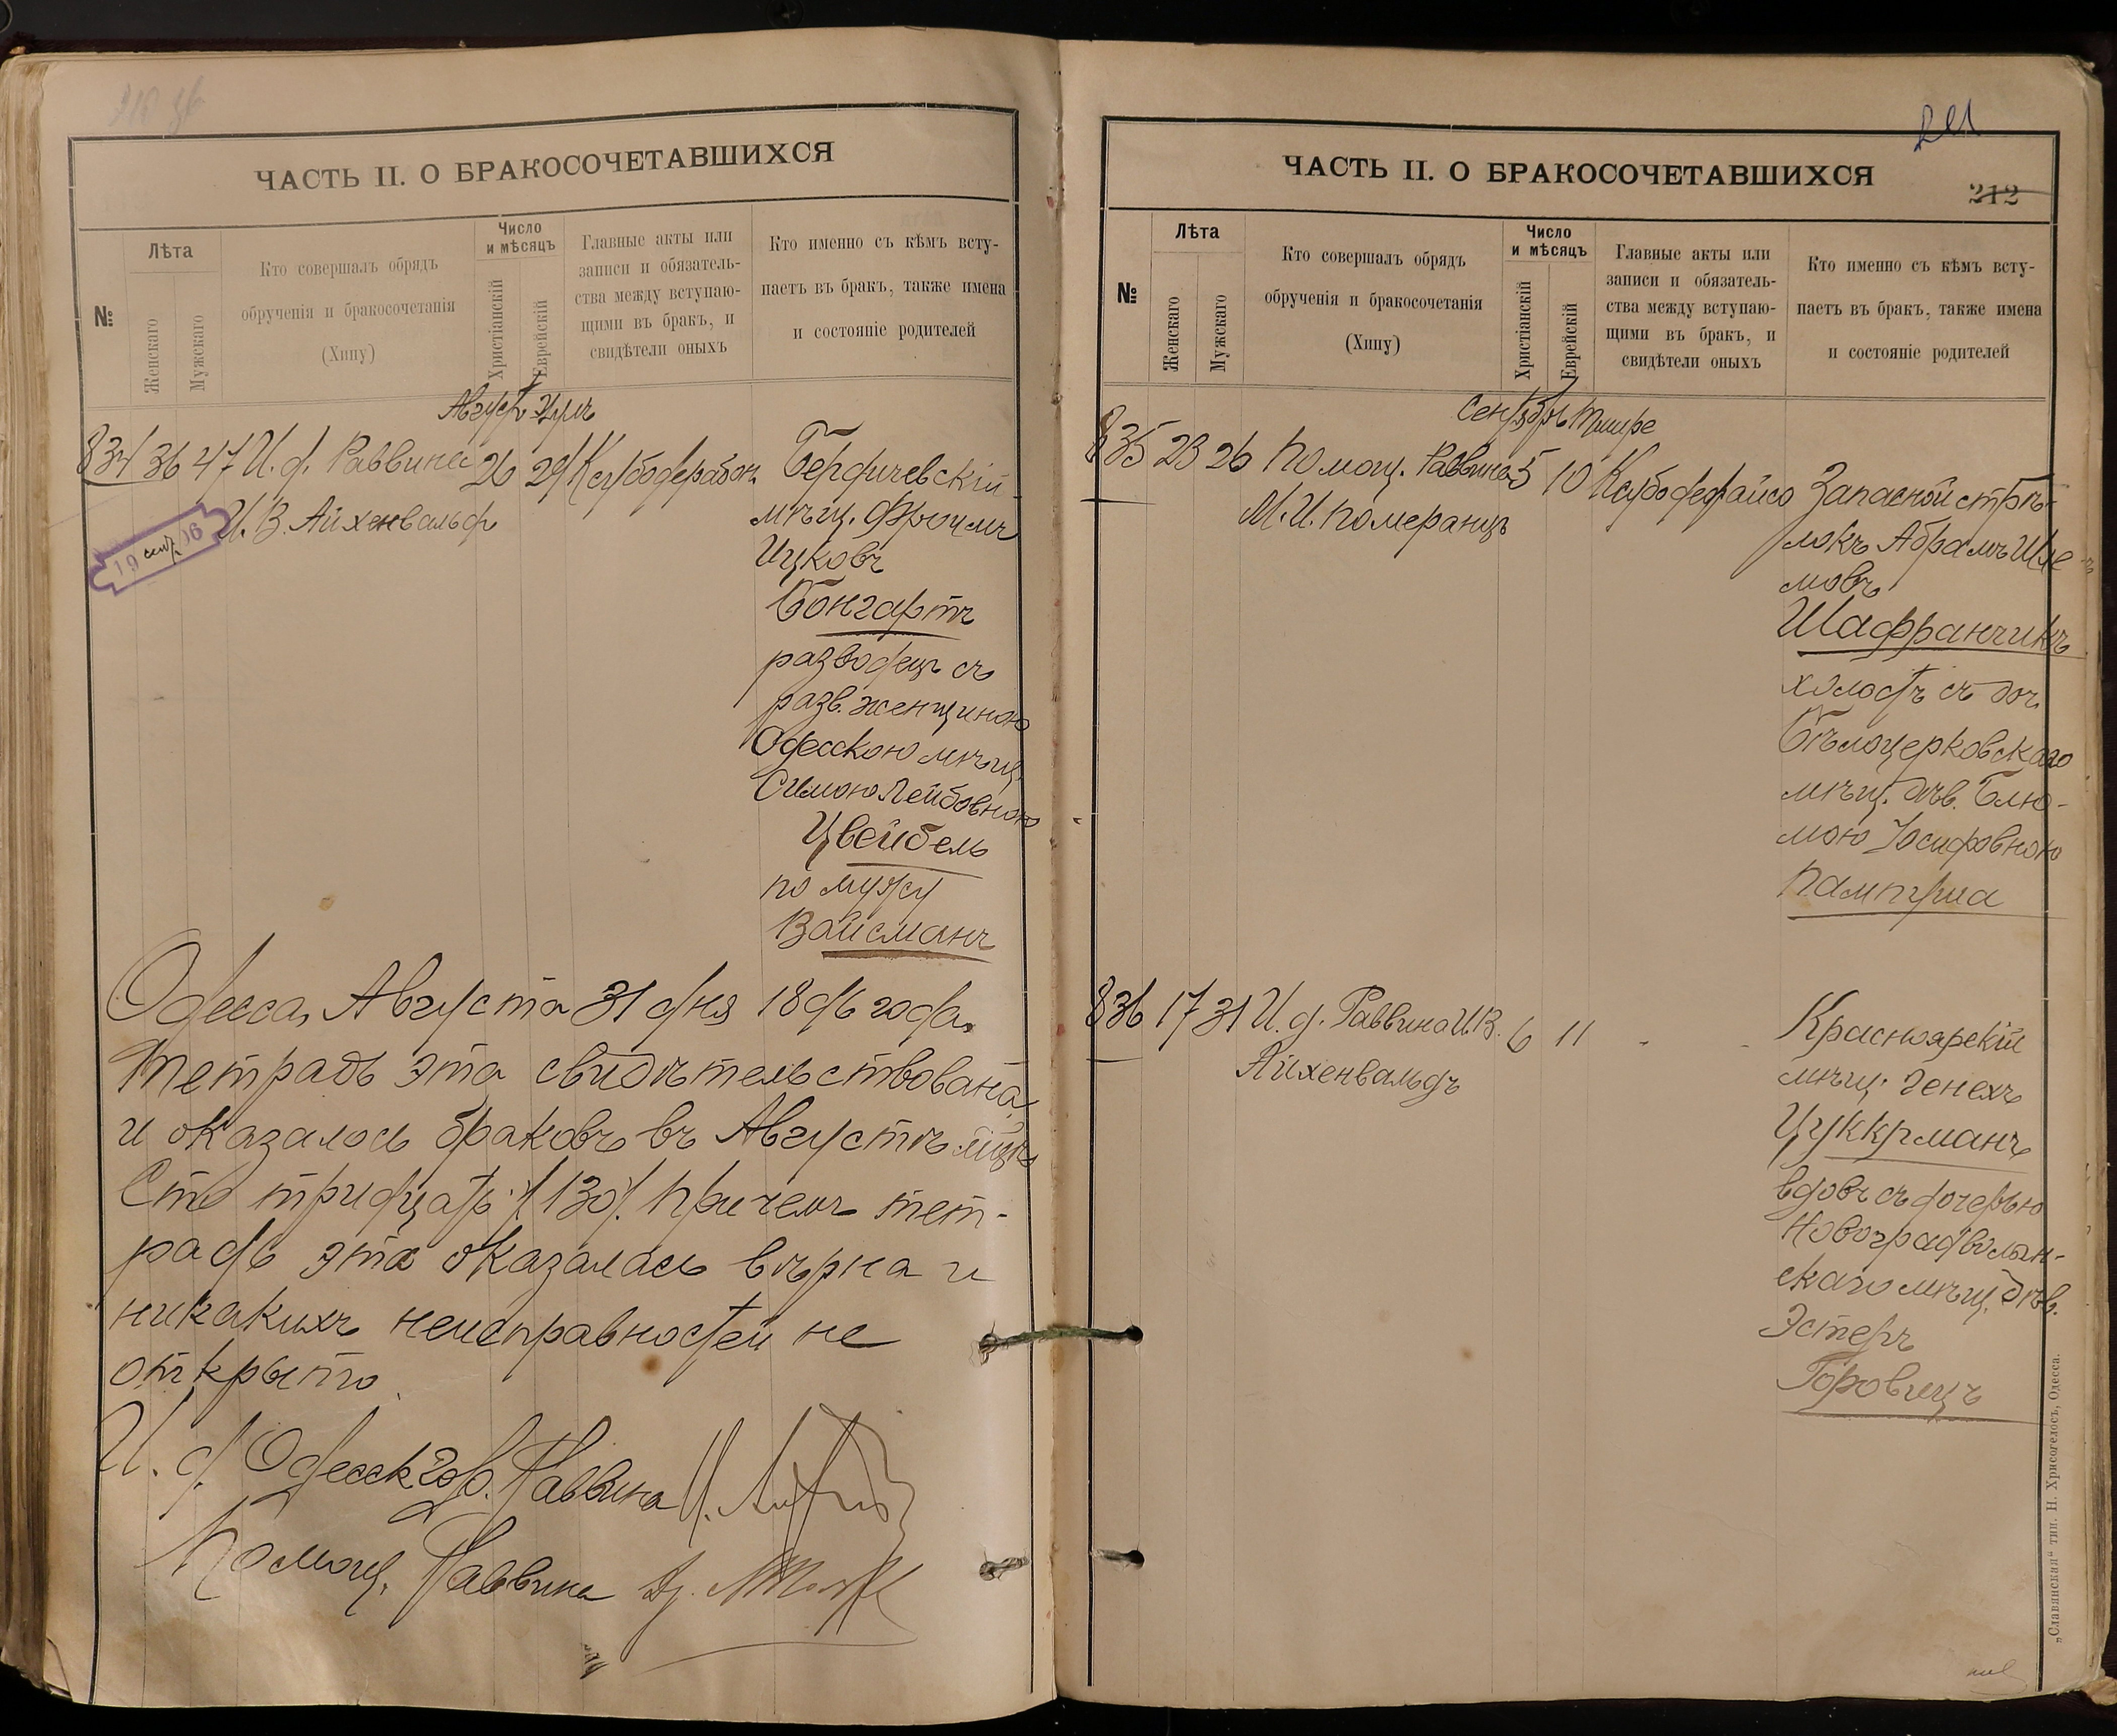 ЧАСТЬ II. О БРАКОСОЧЕТАВШИХСЯ
№
Лѣта
Женскаго
Мужскаго
Кто совершалъ обрядъ
обрученія и бракосочетанія
(Хипу)
Число
и мѣсяцъ
Христіанскій
Еврейскій
Главные акты или
записи и обязатель-
ства между вступаю-
щими въ бракъ, и
свидѣтели оныхъ
Кто именно съ кѣмъ всту-
паетъ въ бракъ, также имена
и состояніе родителей
Август
834 36 47 И. д. Раввина 26 29
И. В. Айхенвальд
19 сент. 06
Бердичевскій
мѣщ. Фроимъ
Ицковъ
Бонгартъ
разводецъ съ
разв. женщиною
Одесскою мѣщ.
Симою Лейбовною
Цвейбель
по мужу
Вайсманъ
Одесса, Августа 31 дня 1896 года.
Тетрадь эта свидѣтельствована
и оказалось браковъ въ Августѣ мцѣ
Сто тридцать /130/. Причемъ тет-
радь эта оказалась вѣрна и
никакихъ неисправностей не
открыто.
И. д. Одесск. Гор. Раввина
Помощ. Раввина
ЧАСТЬ II. О БРАКОСОЧЕТАВШИХСЯ
211
212
№
Лѣта
Женскаго
Мужскаго
Кто совершалъ обрядъ
обрученія и бракосочетанія
(Хипу)
Число
и мѣсяцъ
Христіанскій
Еврейскій
Главные акты или
записи и обязатель-
ства между вступаю-
щими въ бракъ, и
свидѣтели оныхъ
Кто именно съ кѣмъ всту-
паетъ въ бракъ, также имена
и состояніе родителей
Сентябрь Тишре
835 23 26 Помощ. Раввина 5 10
М. И. Померанцъ
Запасной стрѣ-
локъ Абрамъ Шле-
мовъ
Шафранчикъ
холостъ съ доч.
Бѣлоцерковскаго
мѣщ. дѣв. Блю-
мою Іосифовною
836 17 31 И. д. Раввина И. В. 6 11
Айхенвальдъ
Красноярскій
мѣщ. Генехъ
Цуккрманъ
вдовъ съ дочерью
Новоградволын-
скаго мѣщ. дѣв.
Эстеръ
Горовицъ
„Славянская“ тип. Н. Хрисогелосъ, Одесса.